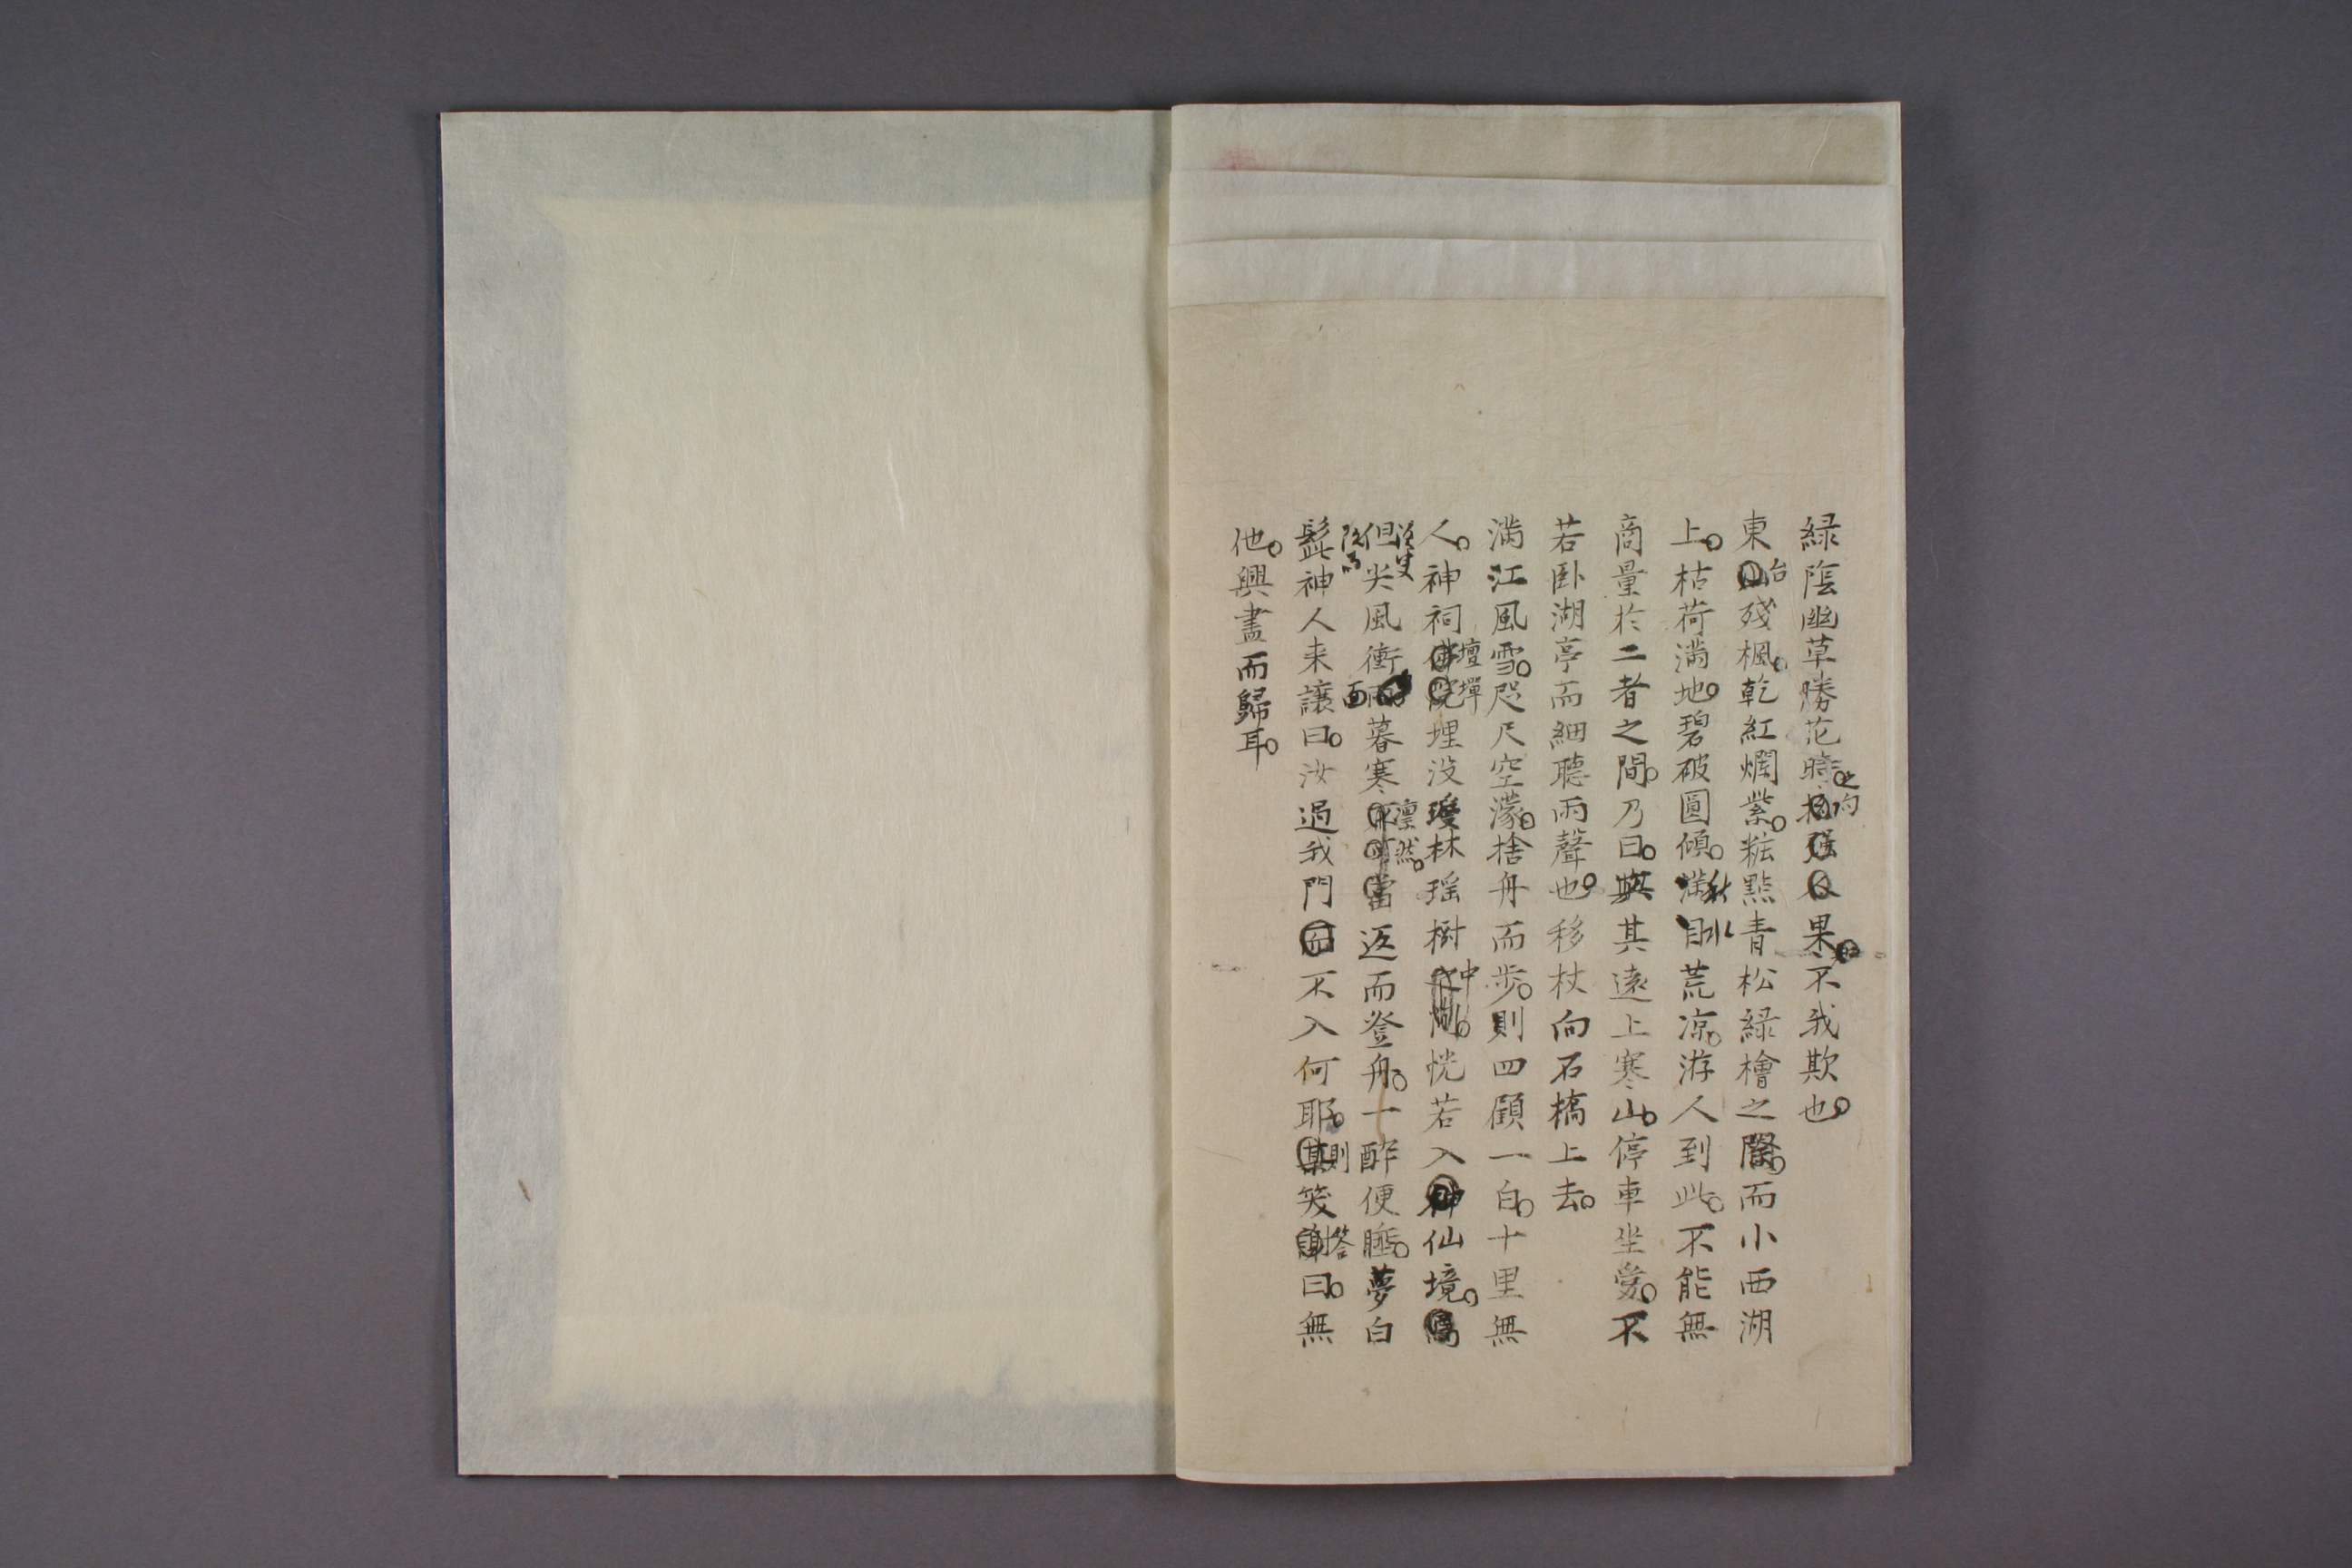 緑陰幽草勝花時之句果不我欺也。
東台殘楓。乾紅爛紫。粧點青松緑檜之際。而小西湖
上。枯荷満地。碧破圓傾。秋水荒凉。游人到此。不能無
商量於二者之間。乃曰。與其遠上寒山。停車坐愛。不
若卧湖亭而細聽雨聲也。移杖向石橋上去。
満江風雪。咫尺空濛。捨舟而歩。則四顧一白。十里無
人。神祠壇墠埋没瓊林瑶樹中。恍若入仙境。
但尖風衝面暮寒凛然。返而登舟。一酔便睡。夢白
髭神人来譲曰。汝過我門不入何耶。則笑答曰。無
他。興盡而歸耳。